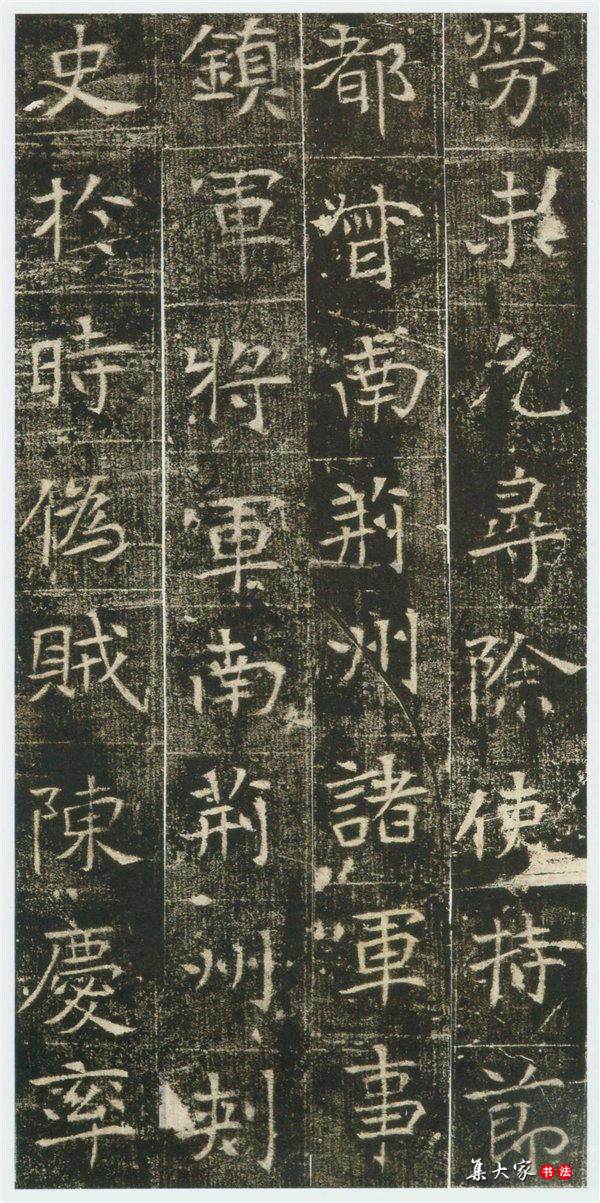 勞未允尋除使持節
都督南荊州諸軍事
鎮軍將軍南荊州刺
史於時偽賊陳慶率
集大家 书法